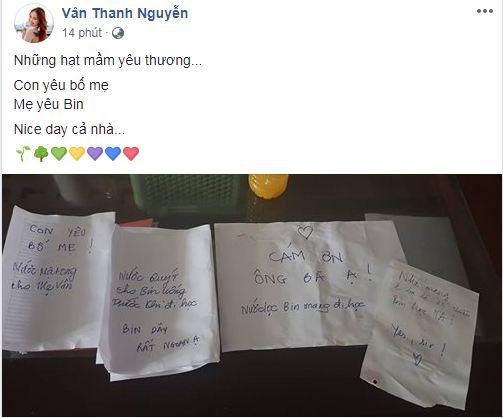 Vân Thanh Nguyễn
14 phút
Những hạt mầm yêu thương...
Con yêu bố mẹ
Mẹ yêu Bin
Nice day cả nhà...
CON YÊU
BỐ MẸ !
Nước
cho Mẹ Vân
NƯỚC QUÝT
cho Bin uống
trước khi đi học
BIN DẬY
RẤT NGOAN Ạ
CÁM ƠN
ÔNG BÀ Ạ !
Nước lọc Bin mang đi học
mang
Yes, sir !